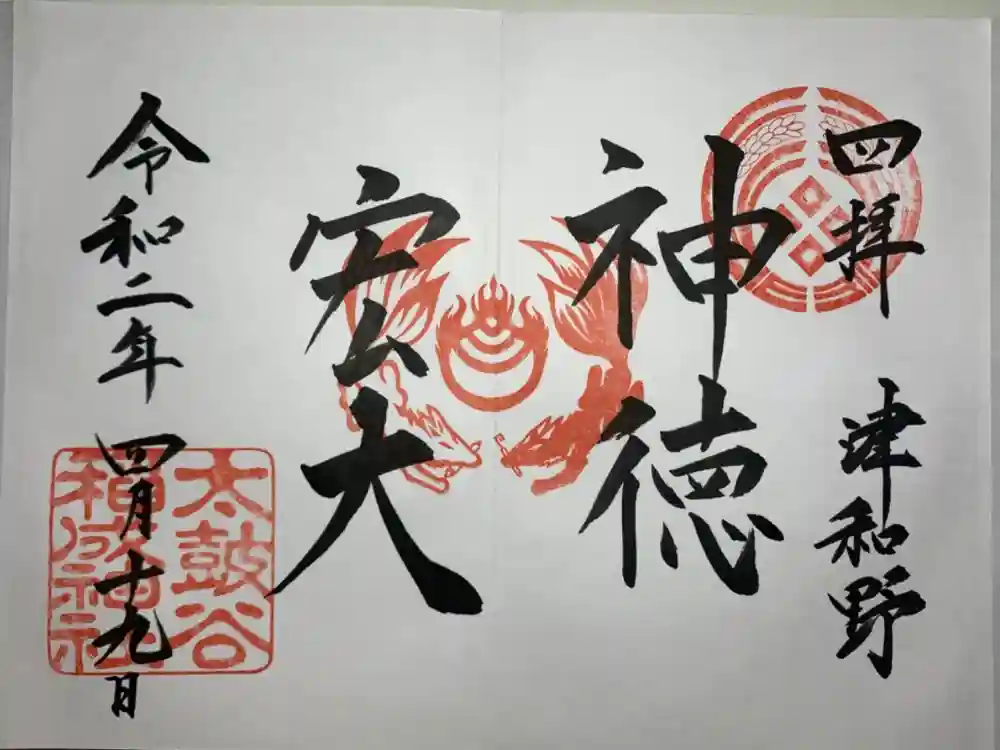 四拝 津和野
神徳
宏大
令和二年 四月十九日
太鼓谷
稲成神社